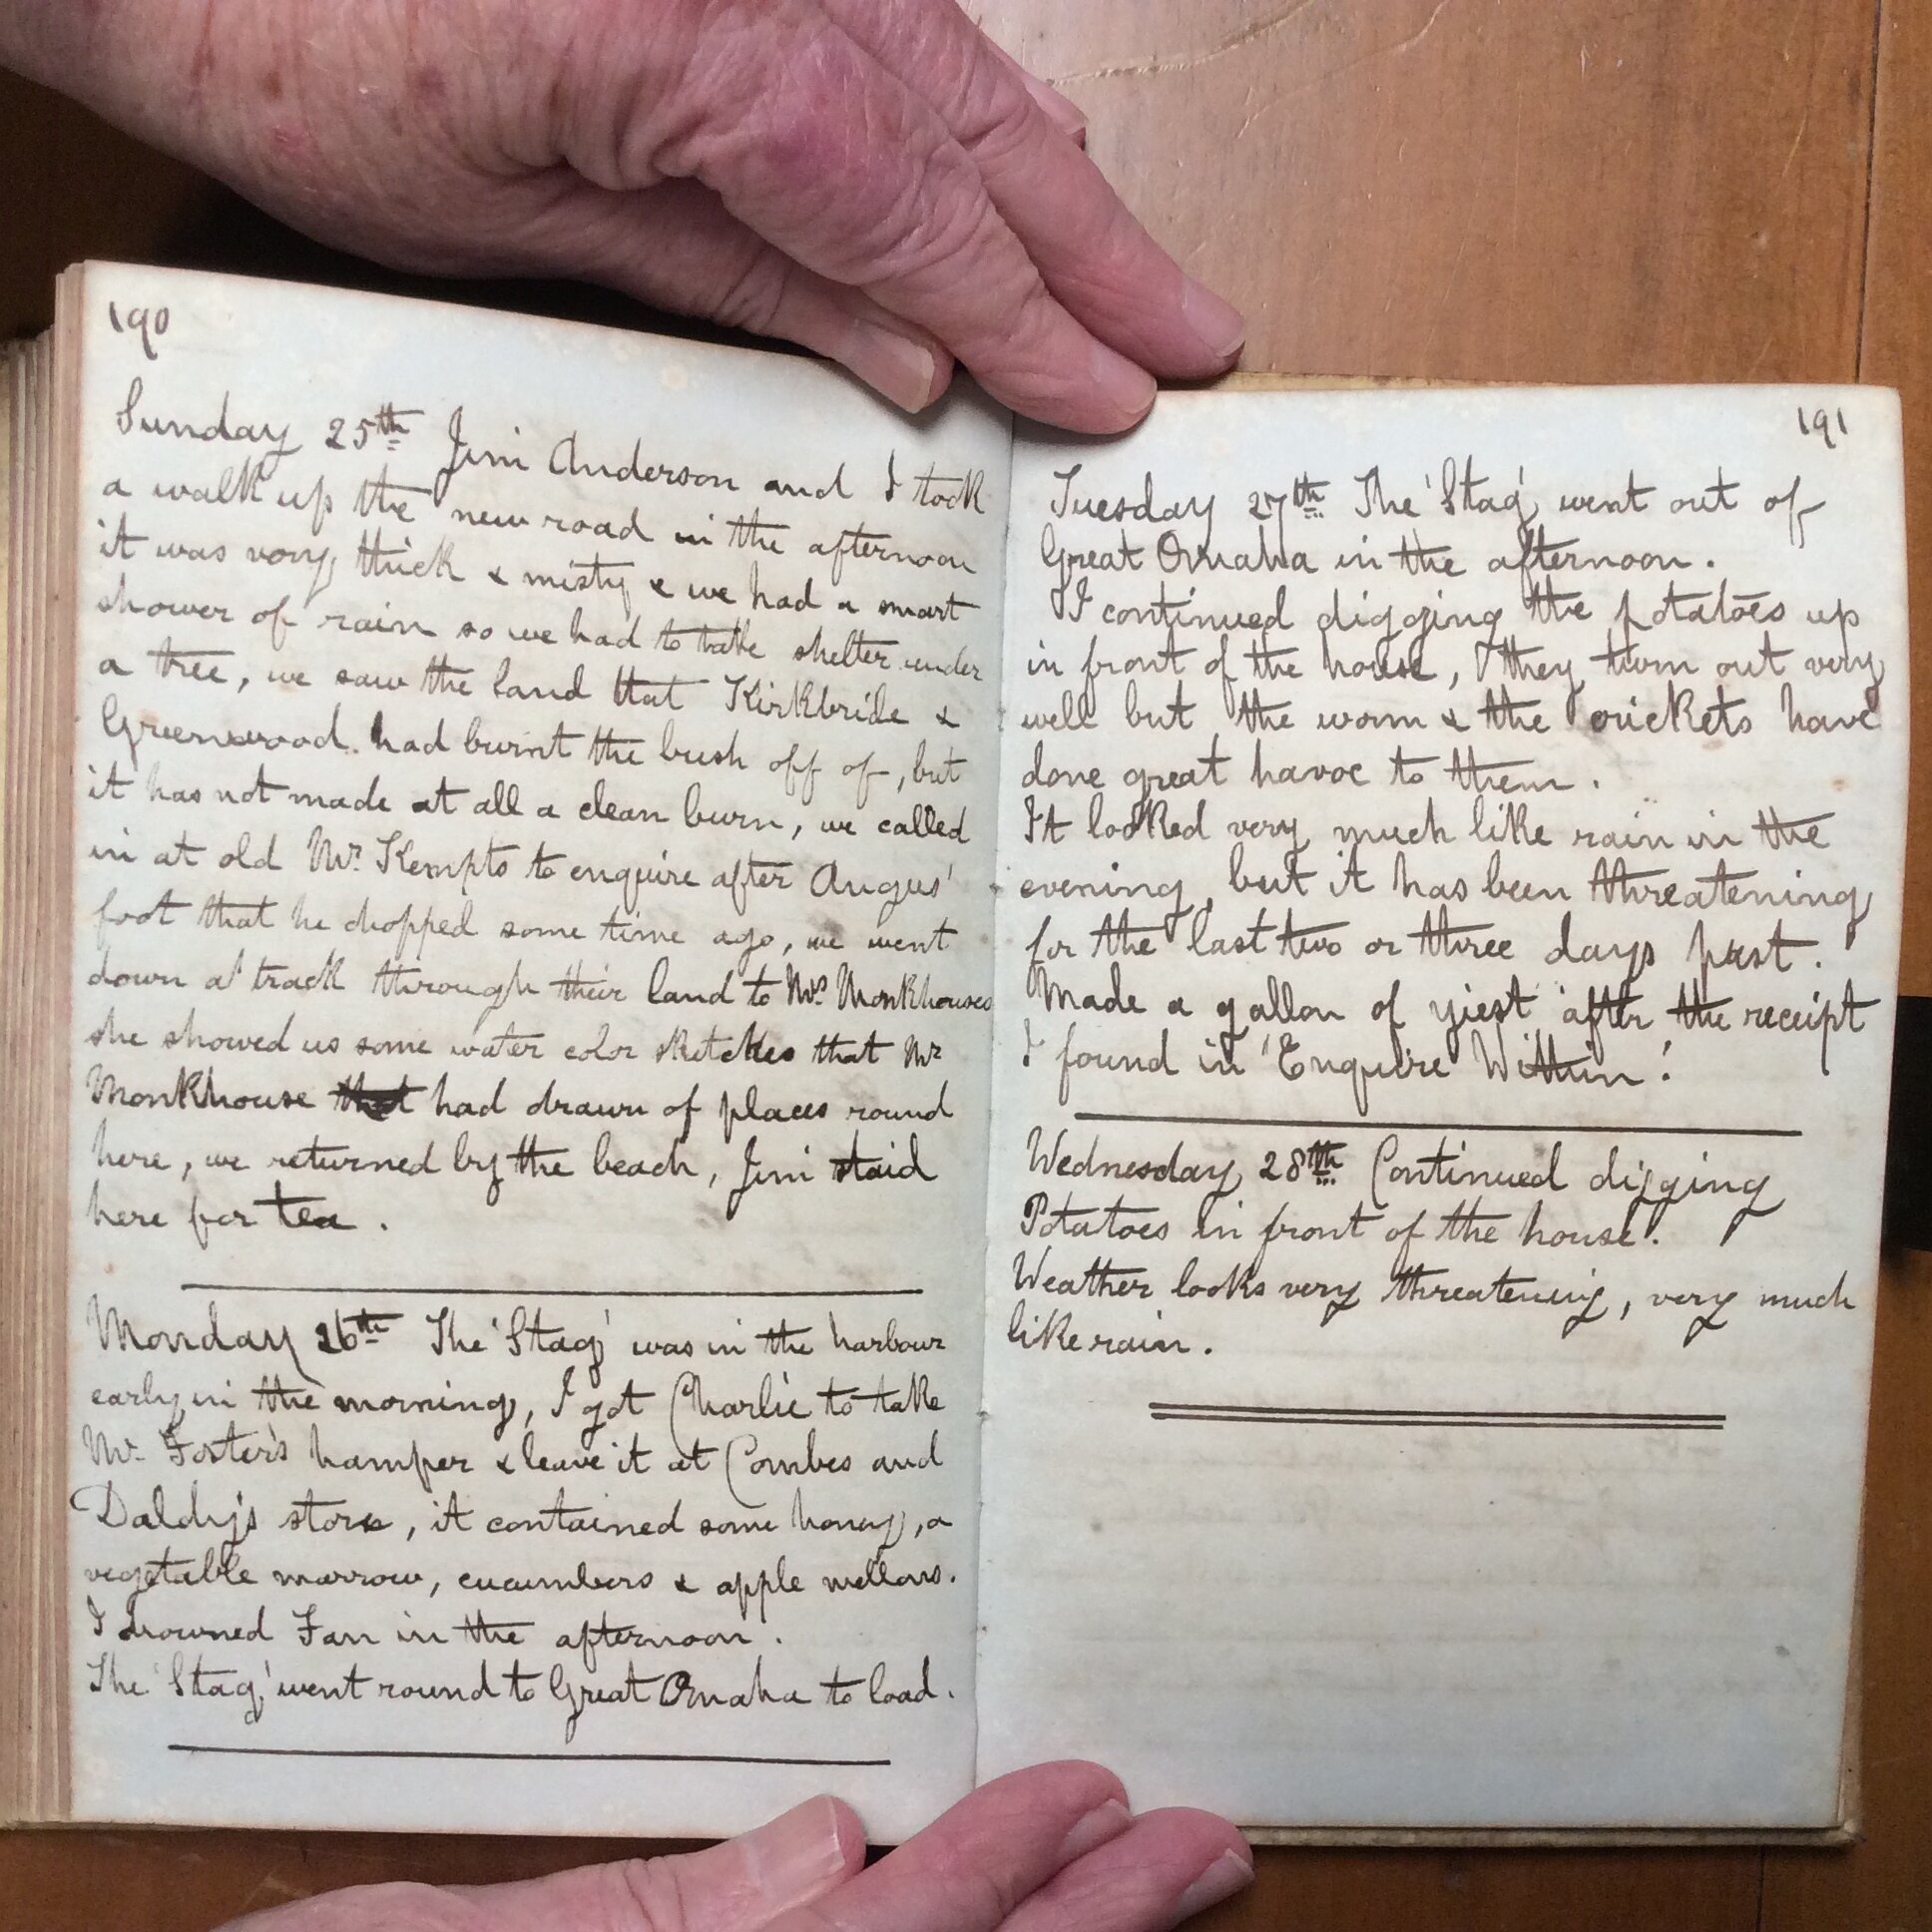 190
Sunday 25th Jim Anderson and I took
a walk up the new road in the afternoon
it was very thick & misty & we had a smart
shower of rain so we had to take shelter under
a tree, we saw the land that Kirkbride &
Greenwood had burnt the bush off of, but
it has not made at all a clean burn, we called
in at old Mr. Kempts to enquire after Angus'
foot that he chopped some time ago, we went
down a track through their land to Mrs Monkhouses
she showed us some water color sketches that Mr
Monkhouse that had drawn of places round
here, we returned by the beach, Jim staid
here for tea.
Monday 26th The 'Stag' was in the harbour
early in the morning, I got Charlie to take
Mr. Foster's hamper & leave it at Combes and
Daldy's store, it contained some honey, a
vegetable marrow, cucumbers & apple mellons.
I drowned Fan in the afternoon.
The 'Stag' went round to Great Omaha to load.
191
Tuesday 27th The 'Stag' went out of
Great Omaha in the afternoon.
I continued digging the potatoes up
in front of the house, they turn out very
well but the worm & the crickets have
done great havoc to them.
It looked very much like rain in the
evening, but it has been threatening
for the last two or three days past.
Made a gallon of yiest after the receipt
I found in 'Enquire Within'.
Wednesday 28th Continued digging
Potatoes in front of the house.
Weather looks very threatening, very much
like rain.